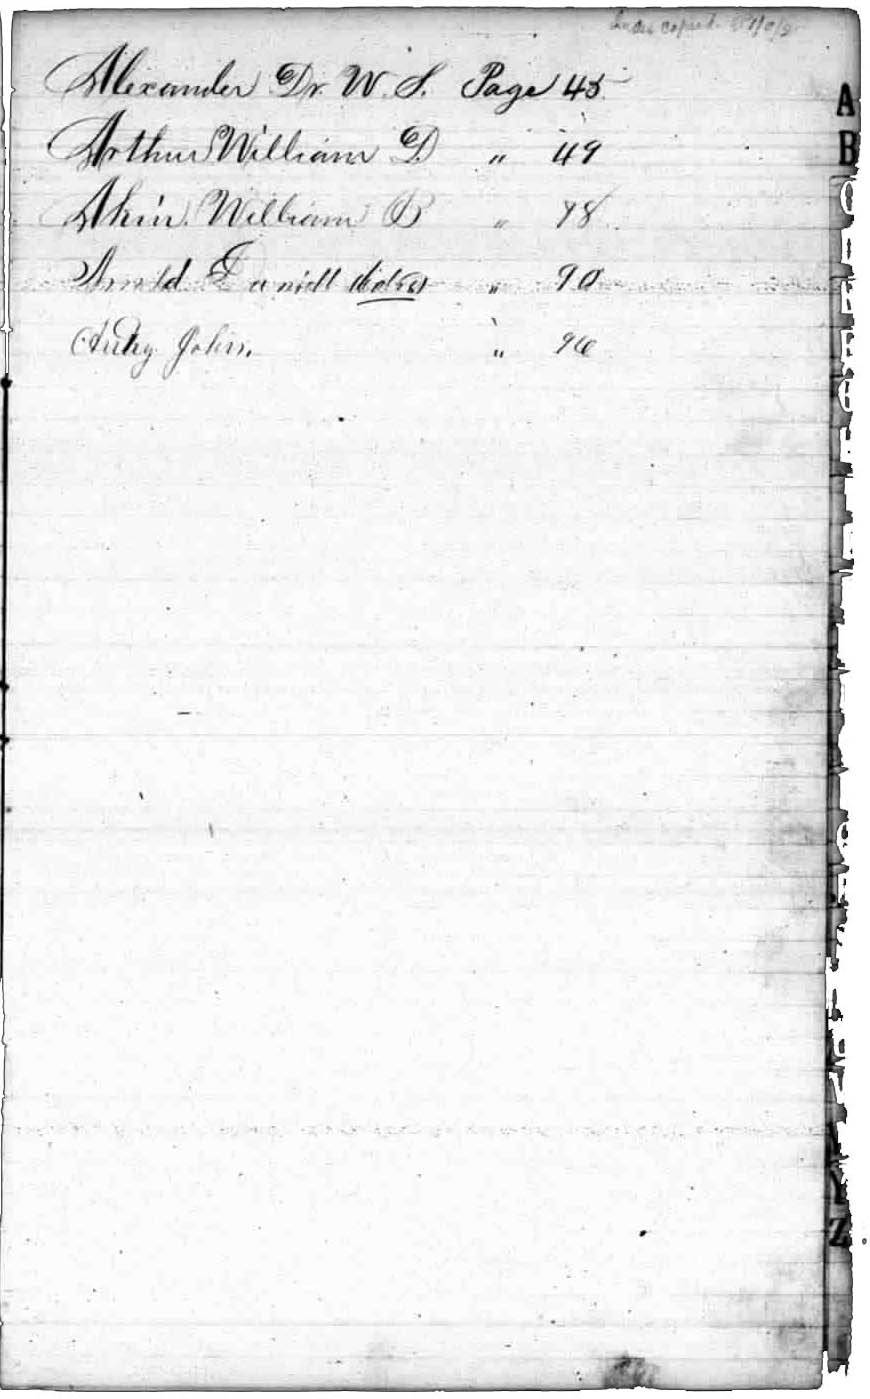 Index copied
Alexander Dr. W. S. Page 45
Arthur William D " 49
Akin William B " 78
Arnold Daniell " 90
Autry John. " 96
A
B
Y
Z